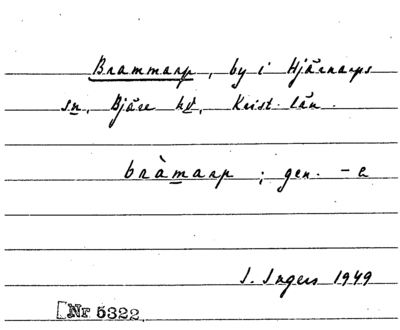 Brammarp, by i Hjärnarps
sn, Bjäre hd, Krist. län.
bràmarp ; gen. -a
I. Ingers 1949
Nr 5322